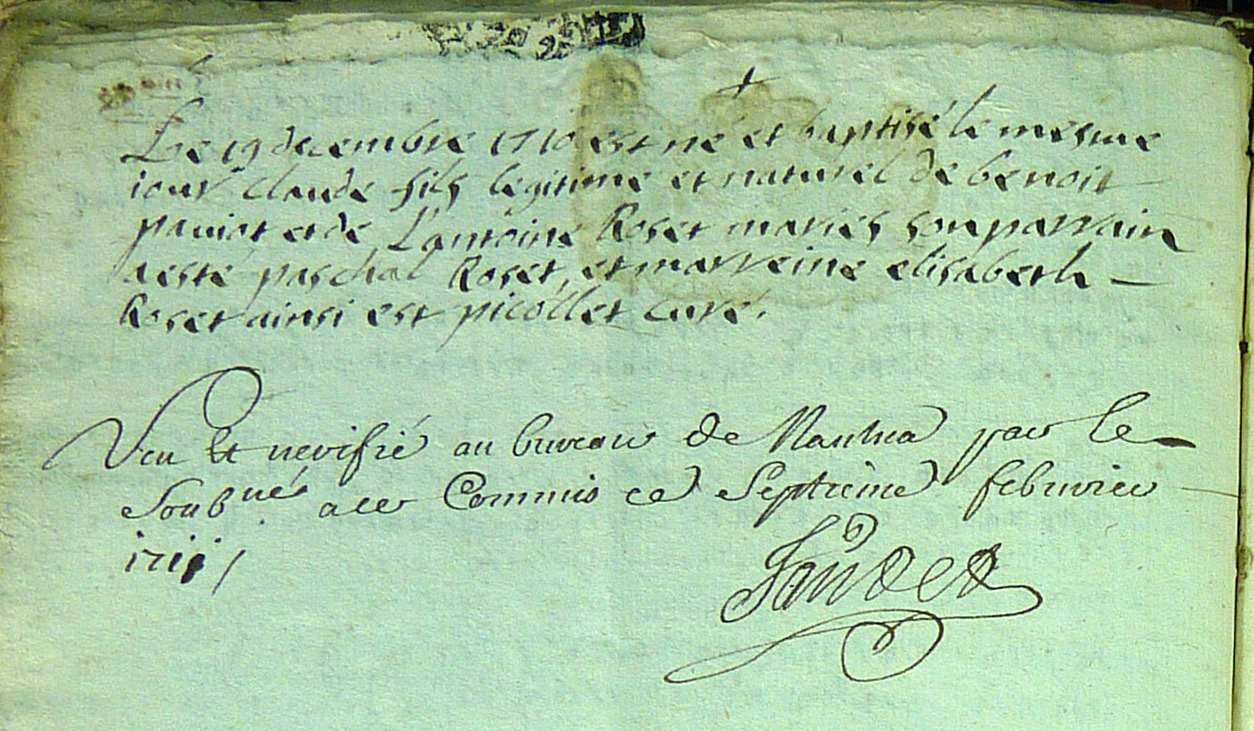 Le 19 decembre 1710 est né et baptisé le mesme
iour claude fils legitime et naturel de benoit
paviot et de L'antoine Roset mariés son parrain
a esté paschal Roset, et marreine elisabeth –
Roset ainsi est picollet curé.
Veu Et veriffié au bureau de Nantua par le
Soubné a ce Commis ce Septieme febvrier
1711